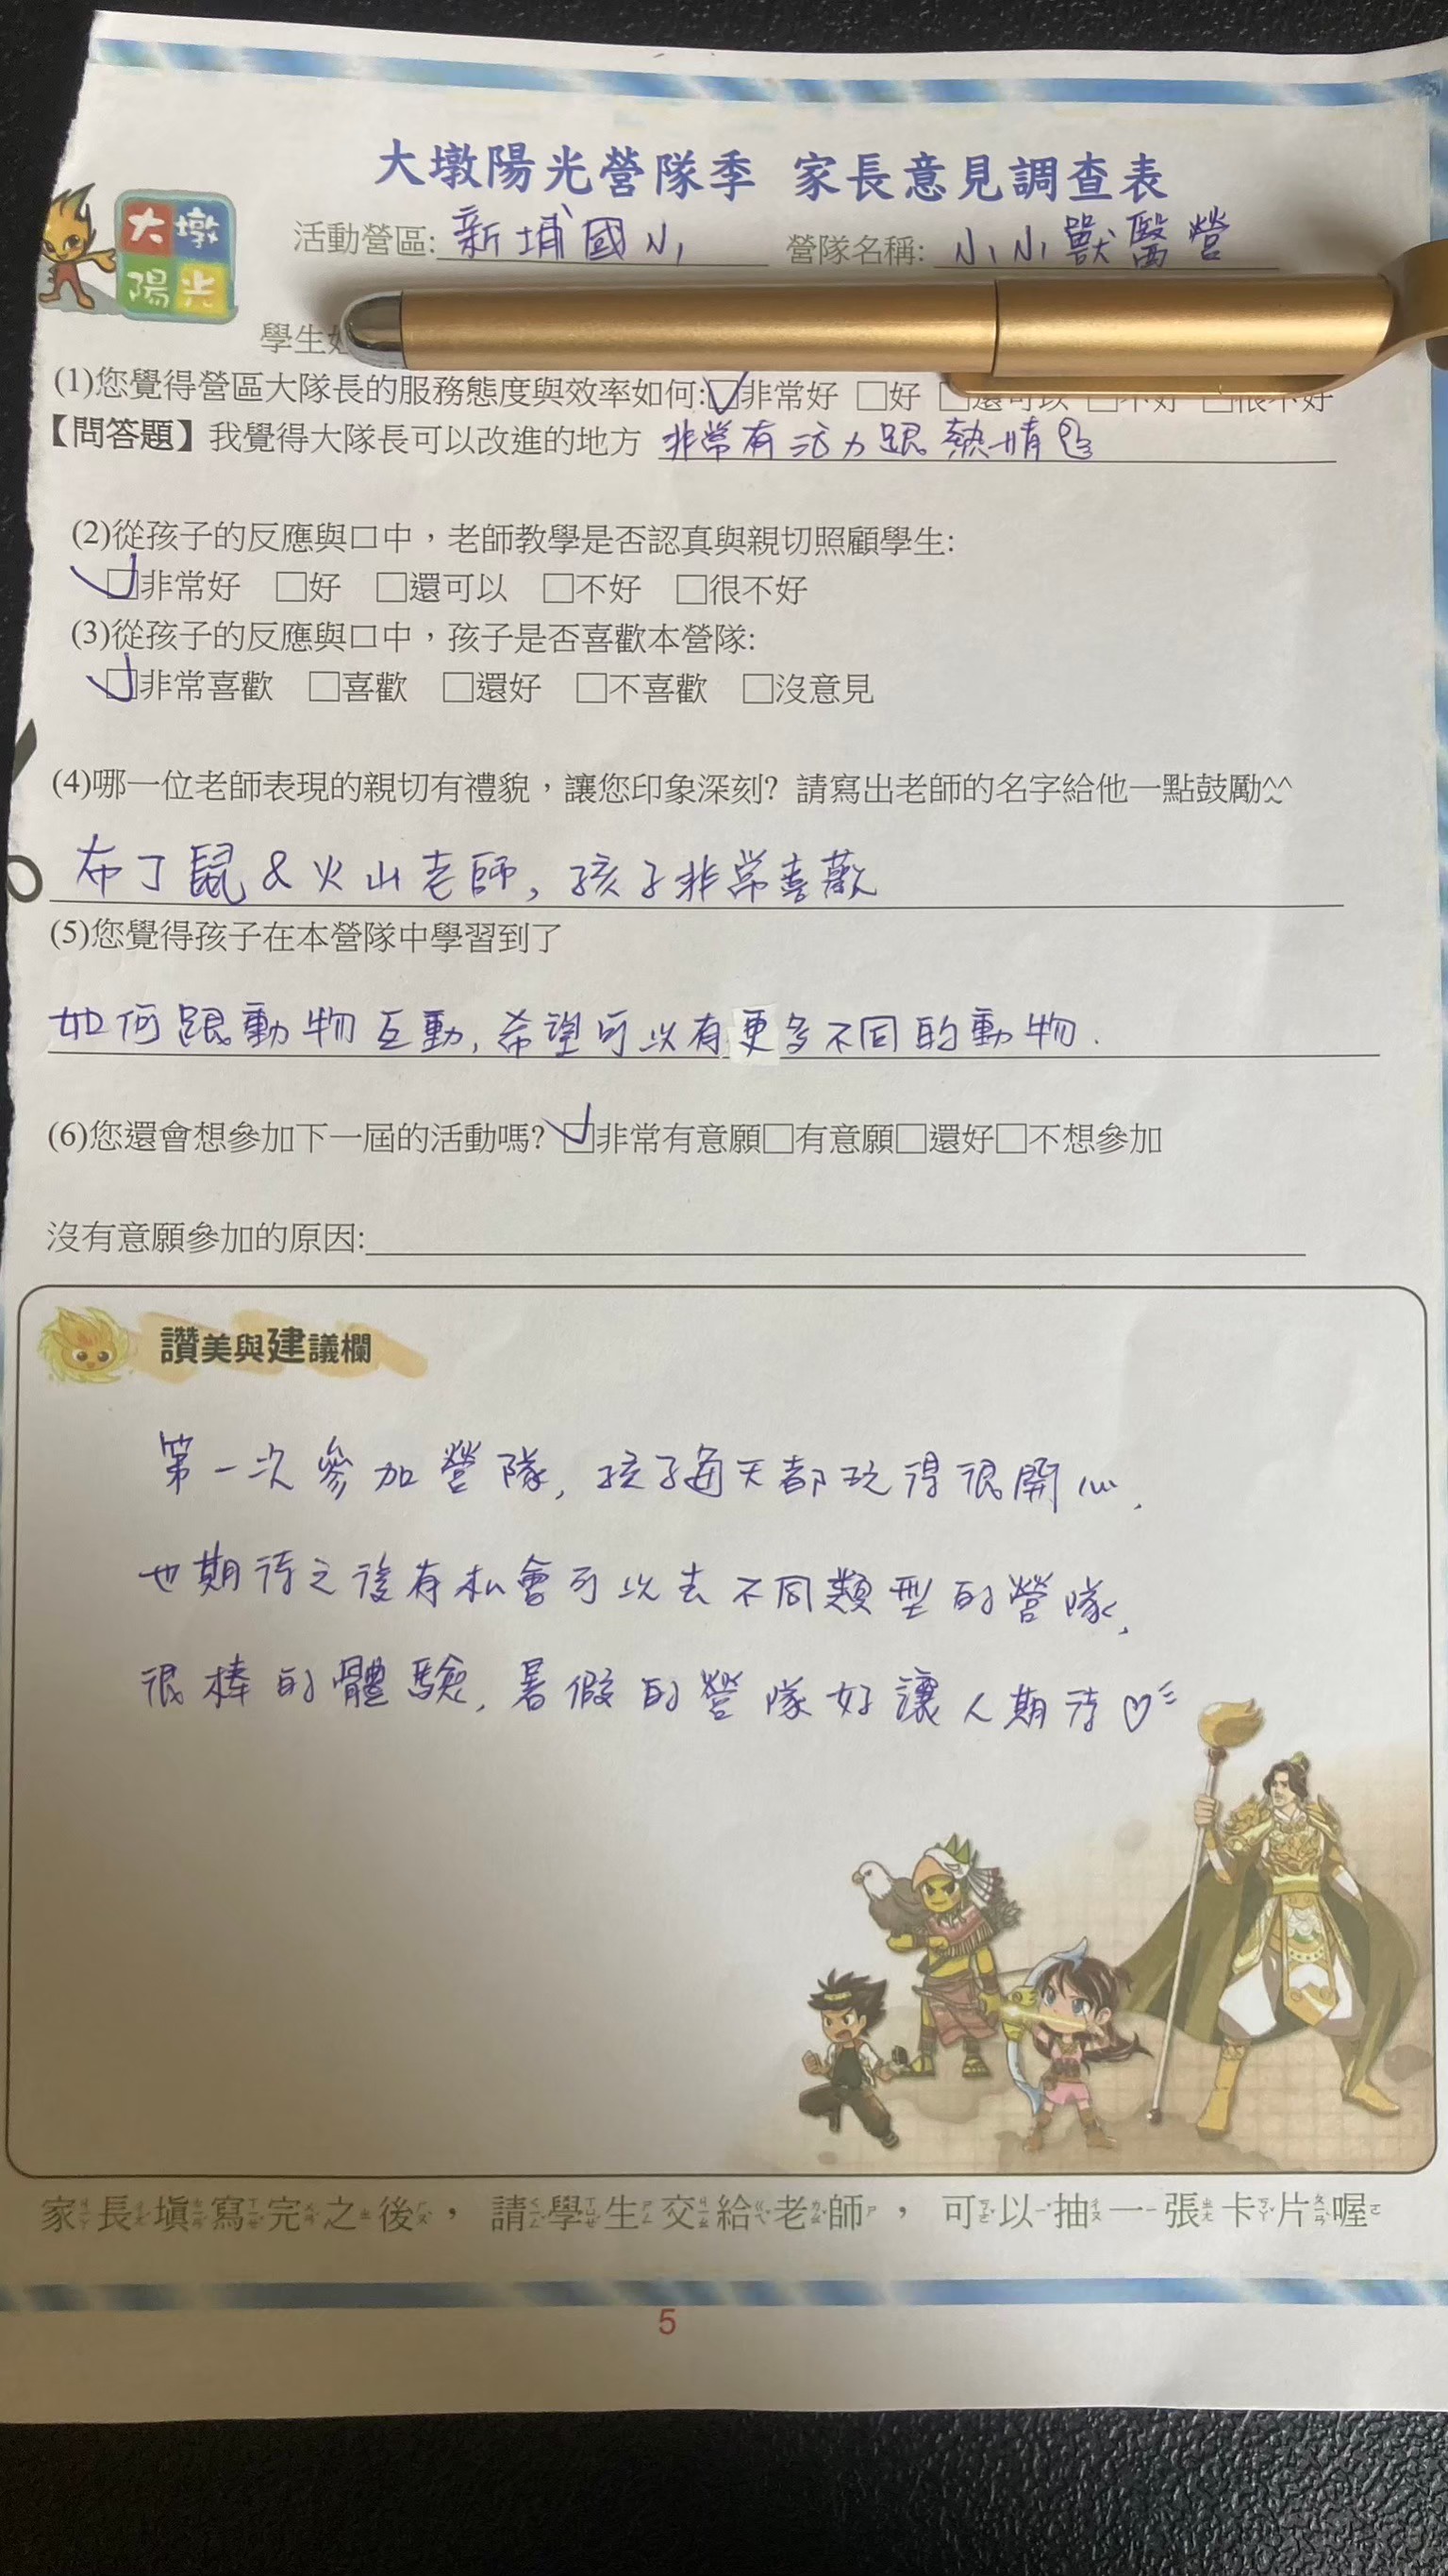 大墩陽光營隊季 家長意見調查表
大墩陽光
活動營區: 新埔國小 營隊名稱: 小小獸醫營
學生
(1)您覺得營區大隊長的服務態度與效率如何:☑非常好 □好 □還可以 □不好 □很不好
【問答題】我覺得大隊長可以改進的地方 非常有活力跟熱情
(2)從孩子的反應與口中，老師教學是否認真與親切照顧學生:
☑非常好 □好 □還可以 □不好 □很不好
(3)從孩子的反應與口中，孩子是否喜歡本營隊:
☑非常喜歡 □喜歡 □還好 □不喜歡 □沒意見
(4)哪一位老師表現的親切有禮貌，讓您印象深刻? 請寫出老師的名字給他一點鼓勵^^
布丁鼠&火山老師, 孩子非常喜歡
(5)您覺得孩子在本營隊中學習到了
如何跟動物互動, 希望可以有更多不同的動物.
(6)您還會想參加下一屆的活動嗎? ☑非常有意願□有意願□還好□不想參加
沒有意願參加的原因:
讚美與建議欄
第一次參加營隊, 孩子每天都玩得很開心,
也期待之後有私會可以去不同類型的營隊,
很棒的體驗, 暑假的營隊好讓人期待♡
家長填寫完之後，請學生交給老師，可以抽一張卡片喔
5